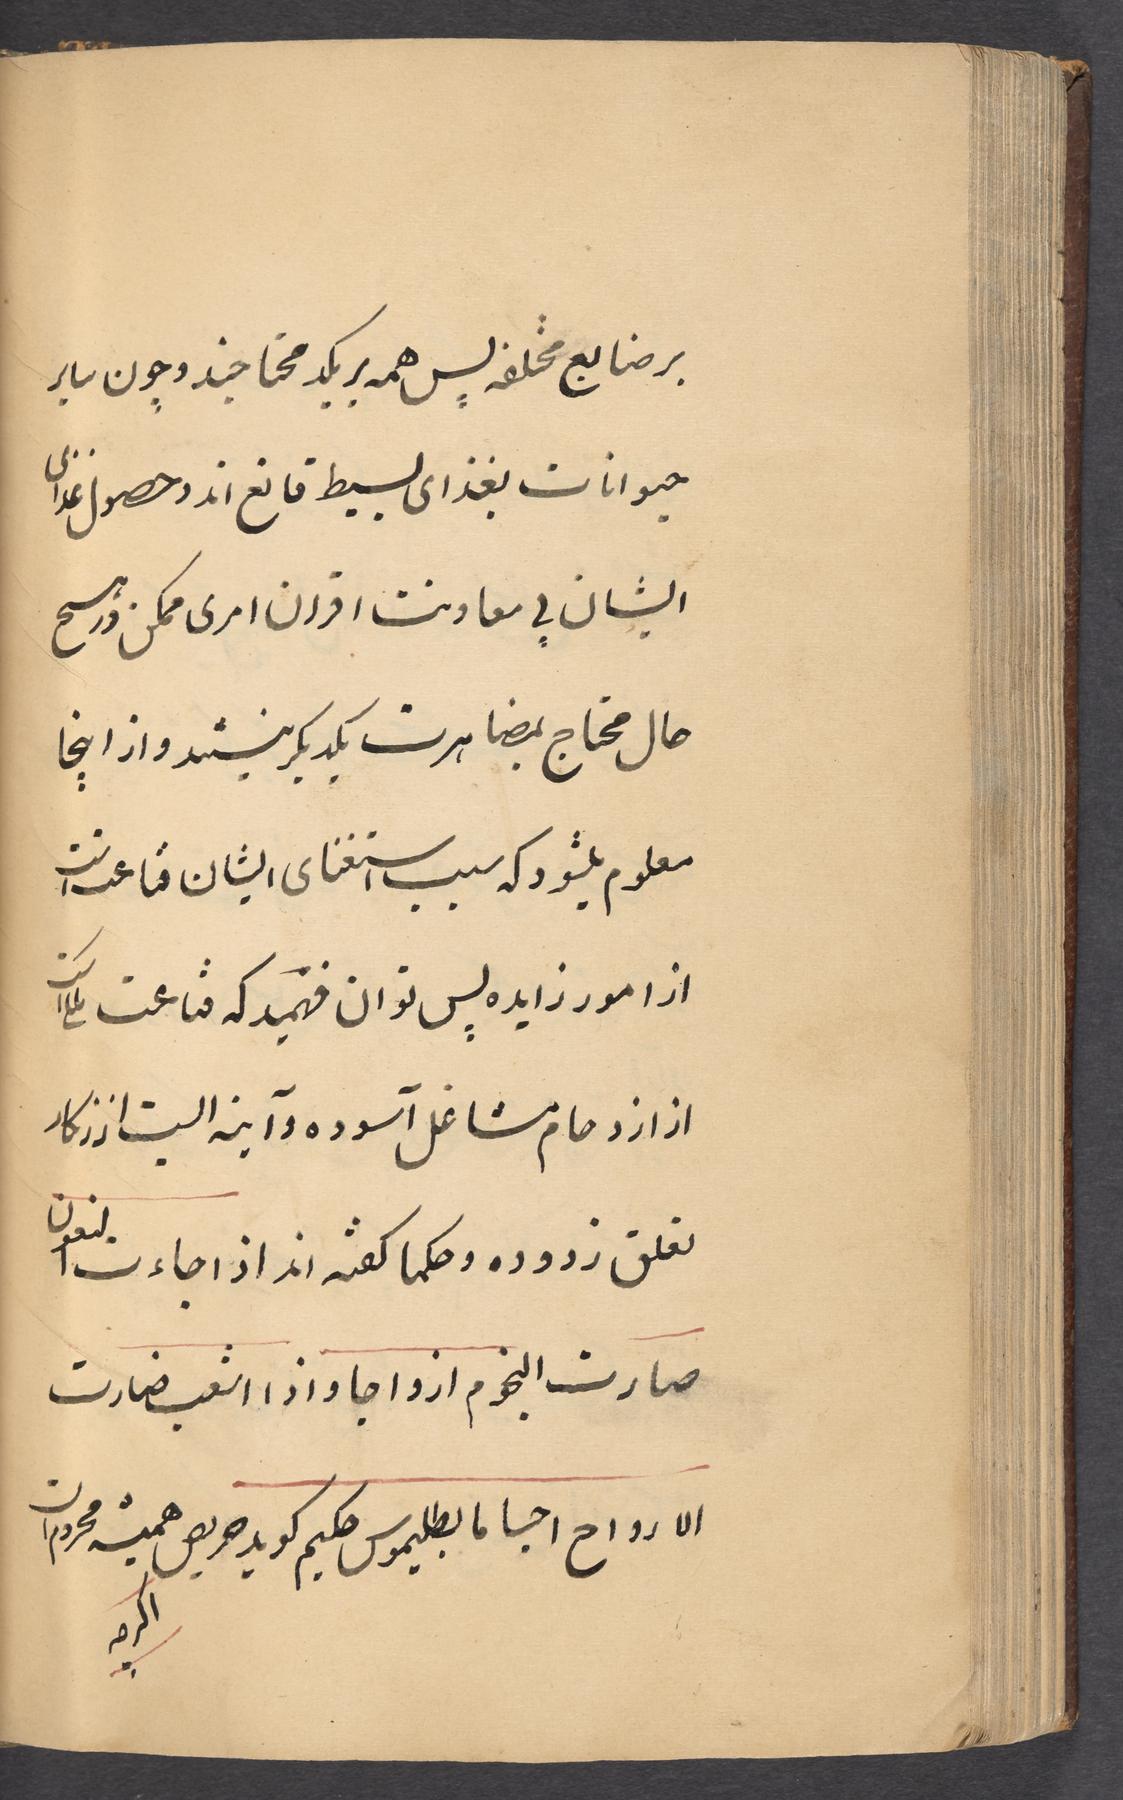 بر صنایع مختلفه پس همه بر یکد محتاجند و چون سایر
حیوانات بغذای بسیط قانع اند و حصول غذای
ایشان بی معاونت اقران امری ممکن و در هیچ
حال محتاج بمضاهرت یکدیگر نیستند و از اینجا
معلوم میشود که سبب استغنای ایشان قناعت است
از امور زایده پس توان فهمید که قناعت
از ازدحام مشاغل آسوده و آینه ایست از زنکار
تعلق زدوده و حکما کفته اند اذا جاءت النفوس
صارت الجوم ازواجا و اذا اشعب صارت
الارواح اجساما بطلیموس حکیم کوید حریص همیشه محروم است
اکرچه